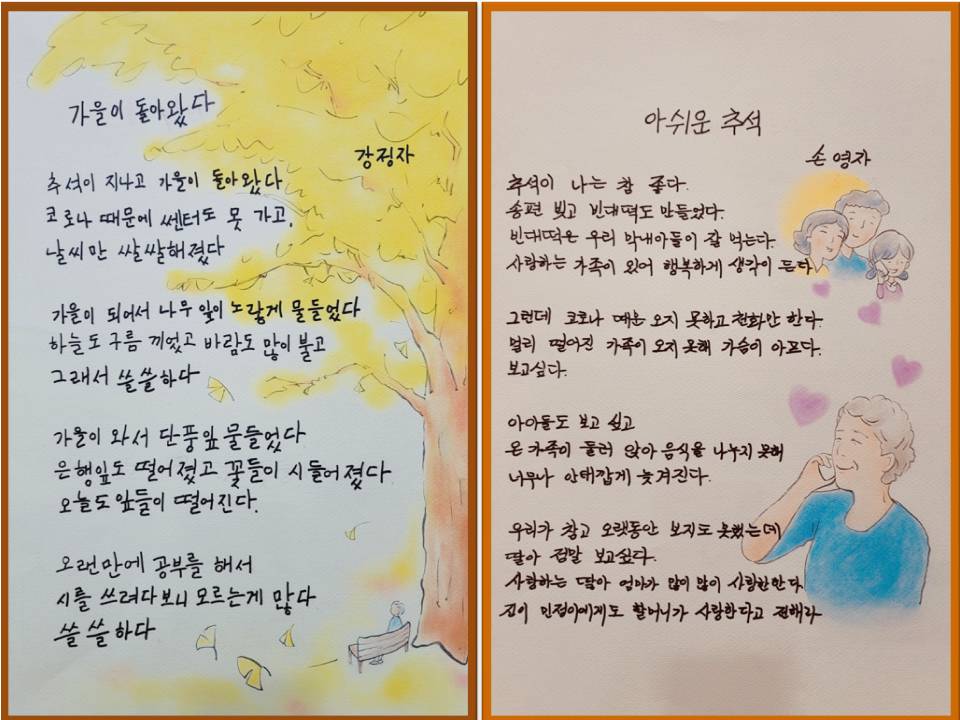 가을이 돌아왔다
강정자
추석이 지나고 가을이 돌아왔다
코로나 때문에 쎈터도 못 가고,
날씨만 쌀쌀해졌다
가을이 되어서 나무 잎이 노랗게 물들었다
하늘도 구름 끼었고 바람도 많이 불고
그래서 쓸쓸하다
가을이 와서 단풍잎 물들었다
은행잎도 떨어졌고 꽃들이 시들어졌다
오늘도 잎들이 떨어진다.
오랜만에 공부를 해서
시를 쓰려다보니 모르는게 많다
쓸쓸하다
아쉬운 추석
손영자
추석이 나는 참 좋다.
송편 빚고 빈대떡도 만들었다.
빈대떡은 우리 막내아들이 잘 먹는다.
사랑하는 가족이 있어 행복하게 생각이 든다
그런데 코로나 때문 오지 못하고 전화만 한다.
멀리 떨어진 가족이 오지 못해 가슴이 아프다.
보고싶다.
아아들도 보고 싶고
온 가족이 둘러 앉아 음식을 나누지 못해
너무나 안태깝게 늦겨진다.
우리가 참고 오랫동안 보지도 못했는데
딸아 정말 보고싶다.
사랑하는 딸아 엄마가 많이 많이 사랑한한다
민정이에게도 할머니가 사랑한다고 전해라